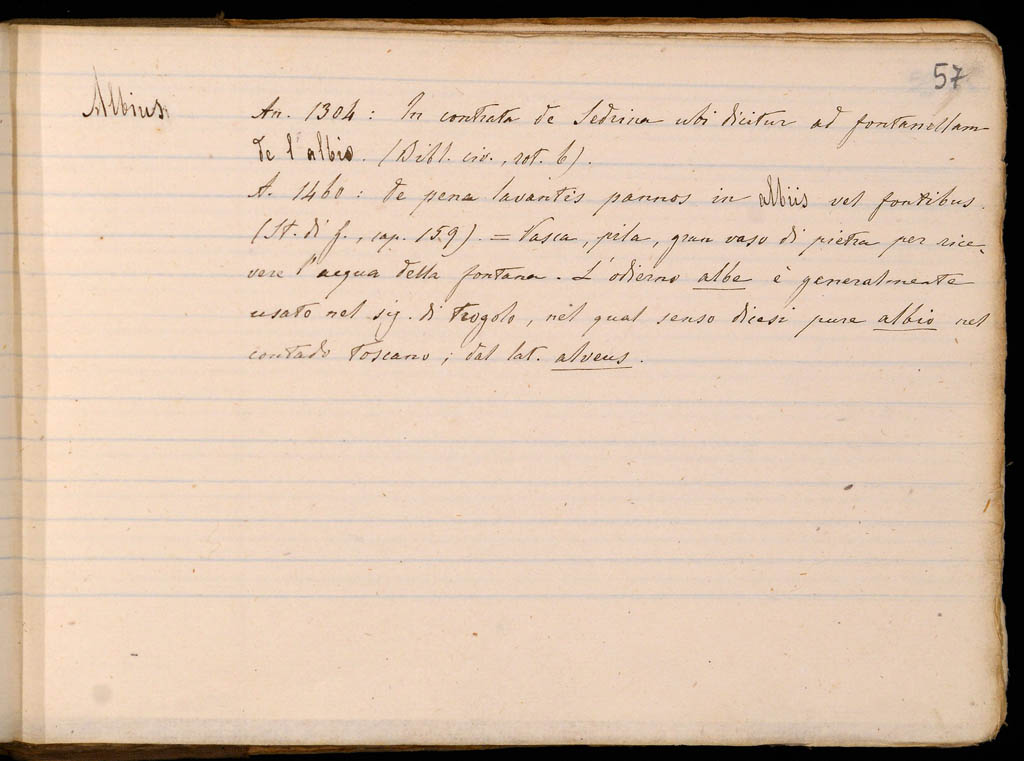 57
Albius
An. 1304: In contrata de Sedrina ubi dicitur ad fontanellam
de l'albio. (Bibl. civ., rot. 6).
A. 1460: de pena lavantis pannos in albiis vel fontibus.
(St. di f., cap. 159). = Vasca, pila, gran vaso di pietra per rice-
vere l'acqua della fontana. L'odierno albe è generalmente
usato nel sig. di trogolo, nel qual senso dicesi pure albio nel
contado toscano; dal lat. alveus.